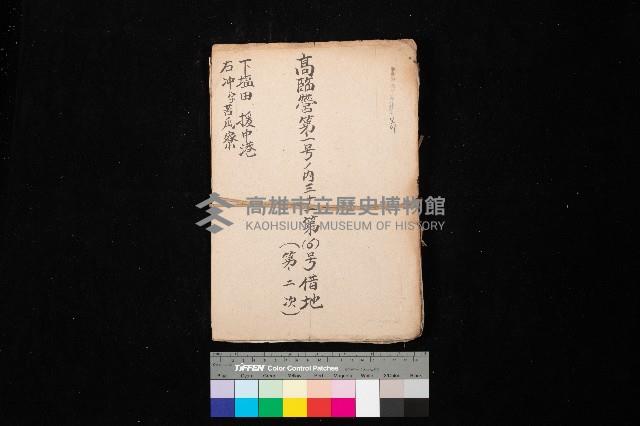 高臨營第一号ノ内三十一第(6)号借地
(第二次)
下塩田 援中港
右冲字苦瓜寮
高雄市立歷史博物館
KAOHSIUNG MUSEUM OF HISTORY
TIFFEN Color Control Patches
Blue Cyan Green Yellow Red Magenta White 3/Color Black